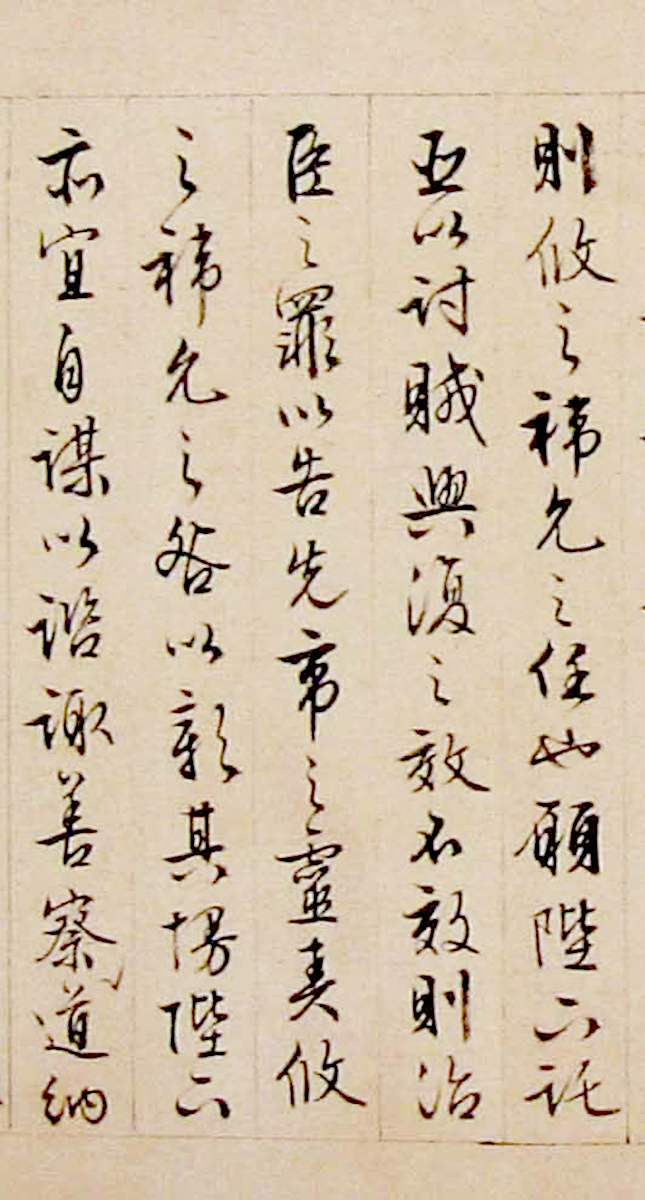 則攸之禕允之任也願陛下託
臣以討賊興復之效不效則治
臣之罪以告先帝之靈責攸
之禕允之咎以彰其慢陛下
亦宜自謀以諮諏善察道納